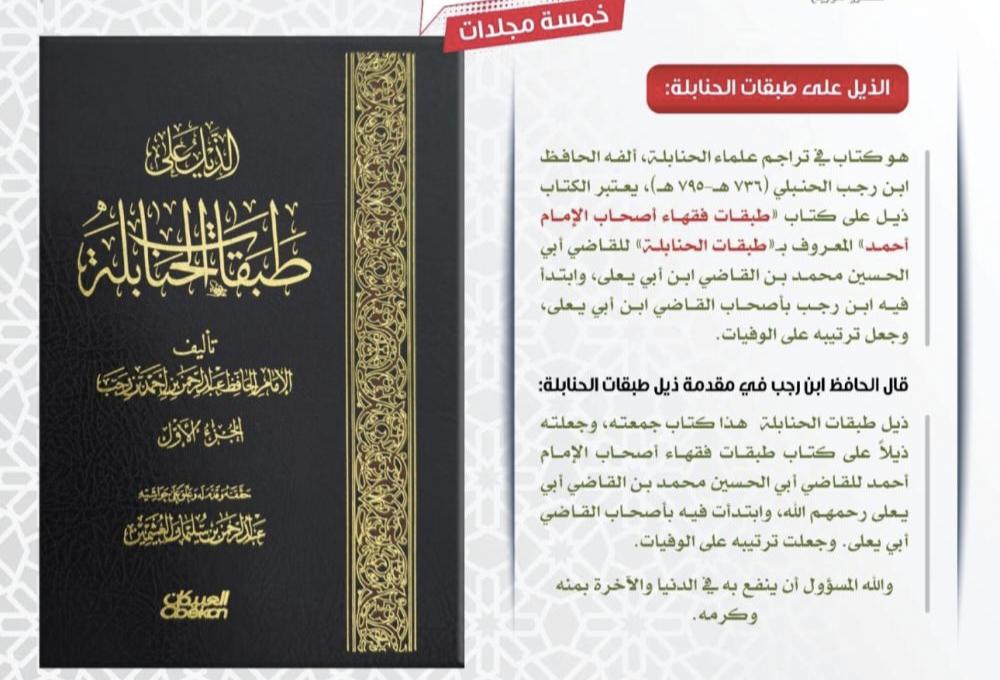 خمسة مجلدات
الذيل على طبقات الحنابلة:
هو كتاب في تراجم علماء الحنابلة، ألفه الحافظ
ابن رجب الحنبلي (٧٣٦ هـ-٧٩٥ هـ)، يعتبر الكتاب
ذيل على كتاب «طبقات فقهاء أصحاب الإمام
أحمد» المعروف بـ«طبقات الحنابلة» للقاضي أبي
الحسين محمد بن القاضي ابن أبي يعلى، وابتدأ
فيه ابن رجب بأصحاب القاضي ابن أبي يعلى،
وجعل ترتيبه على الوفيات.
قال الحافظ ابن رجب في مقدمة ذيل طبقات الحنابلة:
ذيل طبقات الحنابلة هذا كتاب جمعته، وجعلته
ذيلاً على كتاب طبقات فقهاء أصحاب الإمام
أحمد للقاضي أبي الحسين محمد بن القاضي أبي
يعلى رحمهم الله، وابتدأت فيه بأصحاب القاضي
أبي يعلى. وجعلت ترتيبه على الوفيات.
والله المسؤول أن ينفع به في الدنيا والآخرة بمنه
وكرمه.
الذيل على
طبقات الحنابلة
تأليف
الإمام الحافظ عبد الرحمن بن أحمد بن رجب
الجزء الأول
حققه وقدم له وعلق على حواشيه
عبد الرحمن بن سليمان العثيمين
العبيكان
Obekan